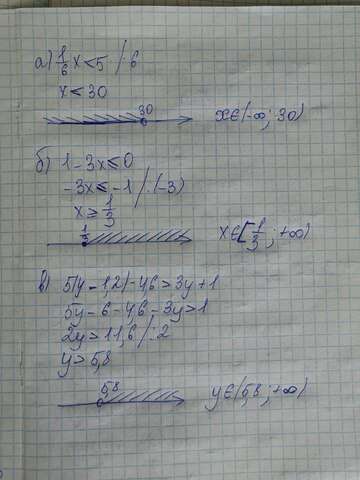 а) 1/6 x < 5 / · 6
x < 30
30
x∈(-∞; 30)
б) 1 - 3x ≤ 0
-3x ≤ -1 / : (-3)
x ≥ 1/3
1/3
x∈[1/3; +∞)
в) 5(y - 1,2) - 4,6 > 3y + 1
5y - 6 - 4,6 - 3y > 1
2y > 11,6 / : 2
y > 5,8
5,8
y∈(5,8; +∞)